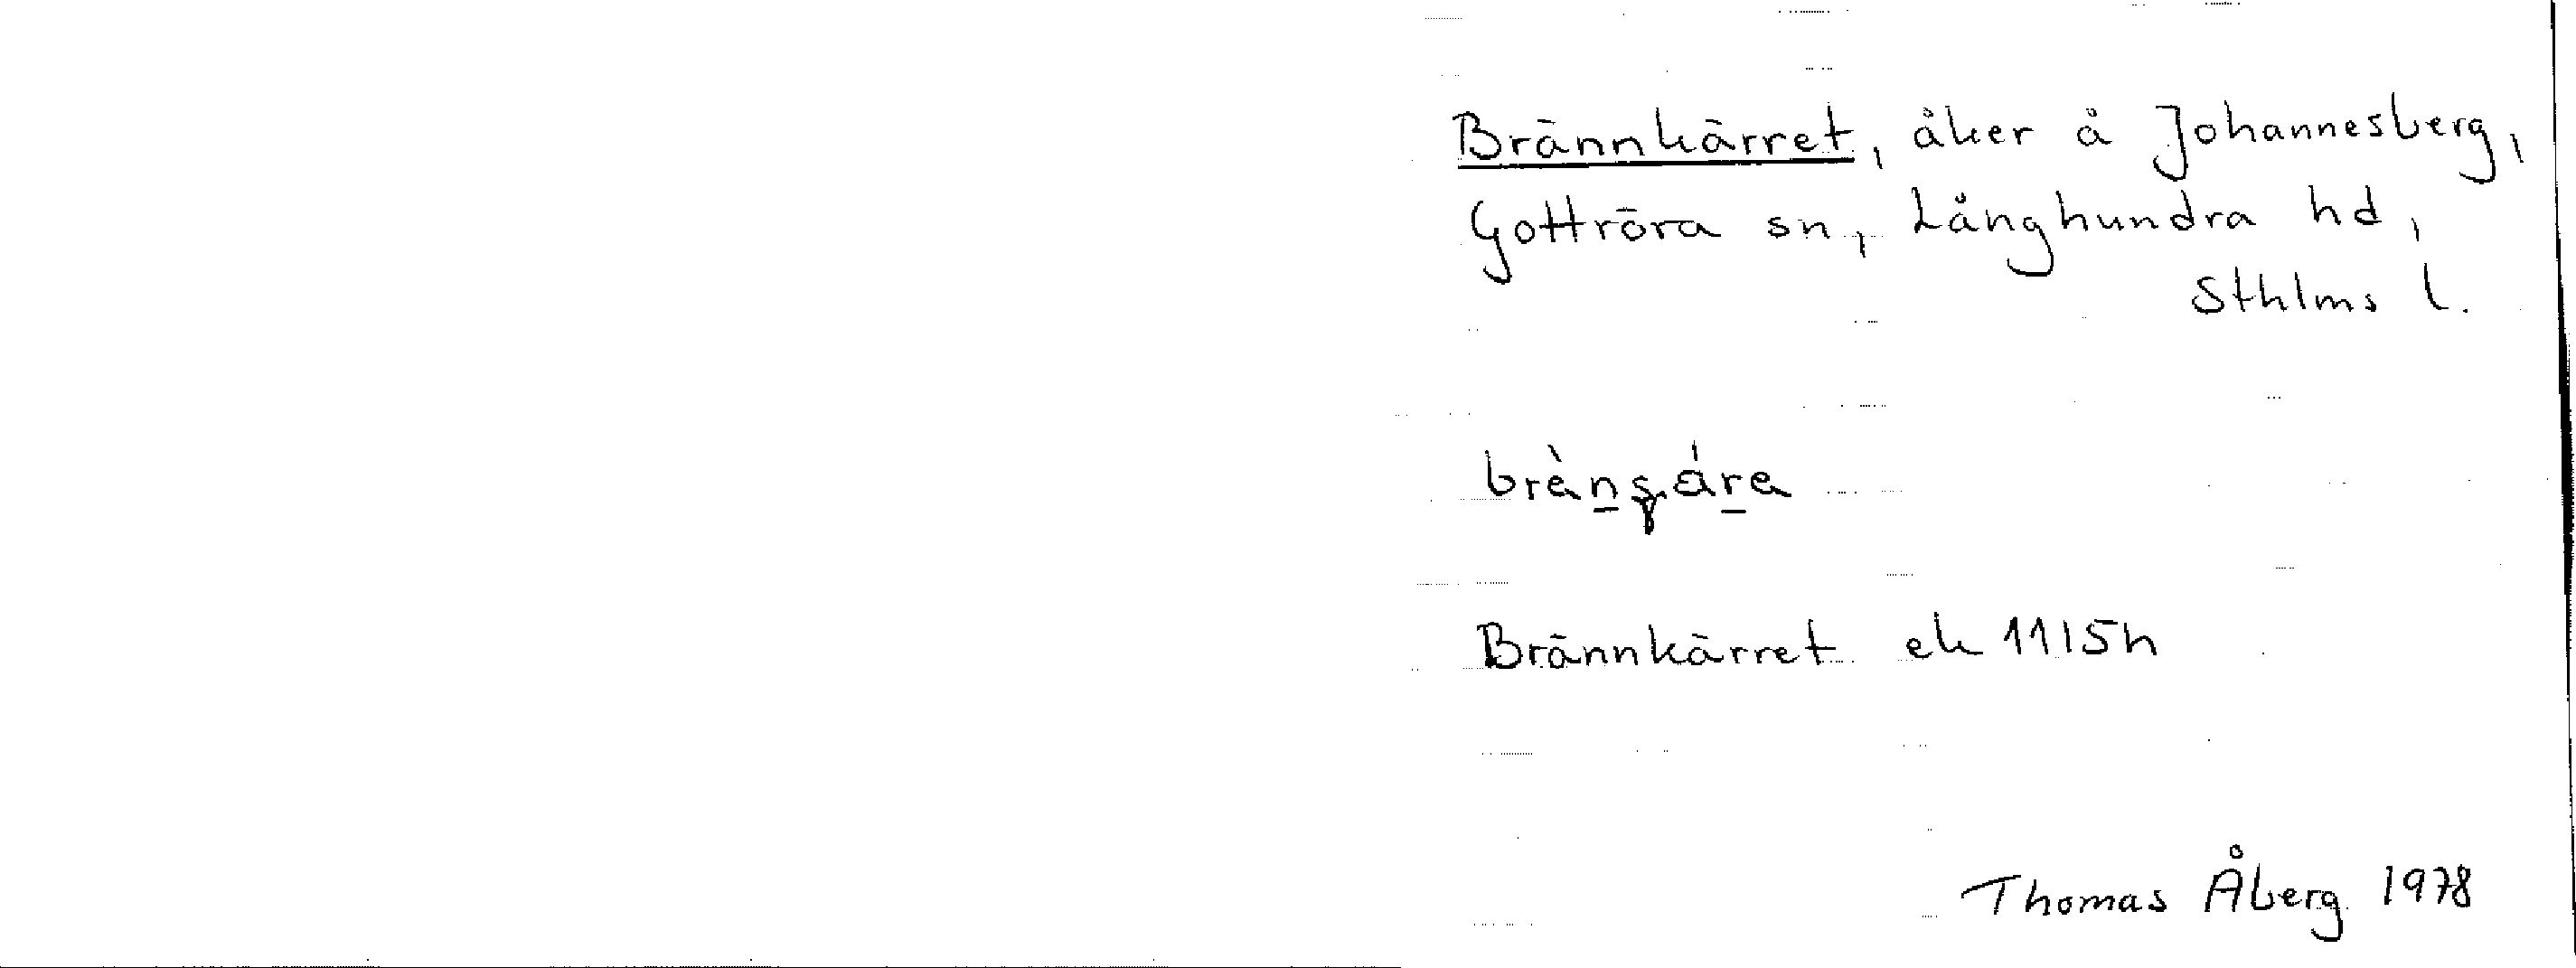 Brännkärret, åker å Johannesberg,
Gottröra sn, Långhundra hd,
Sthlms l.
Brännkärret ek 11I5h
Thomas Åberg 1978